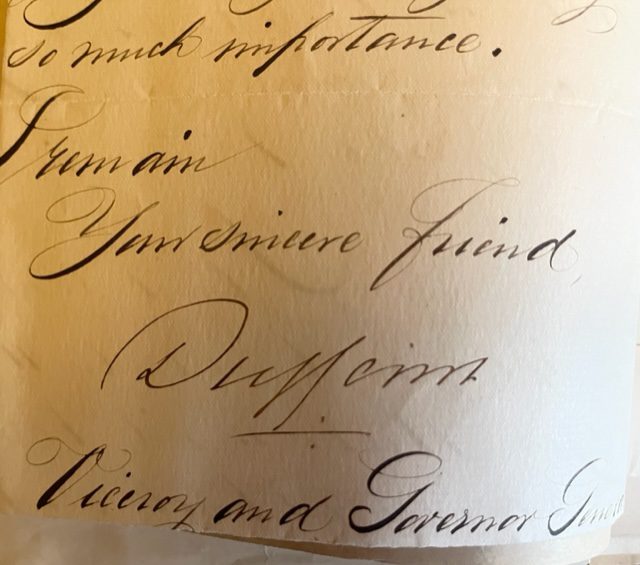 so much importance.
I remain
Your sincere Friend,
Dufferin
Viceroy and Governor